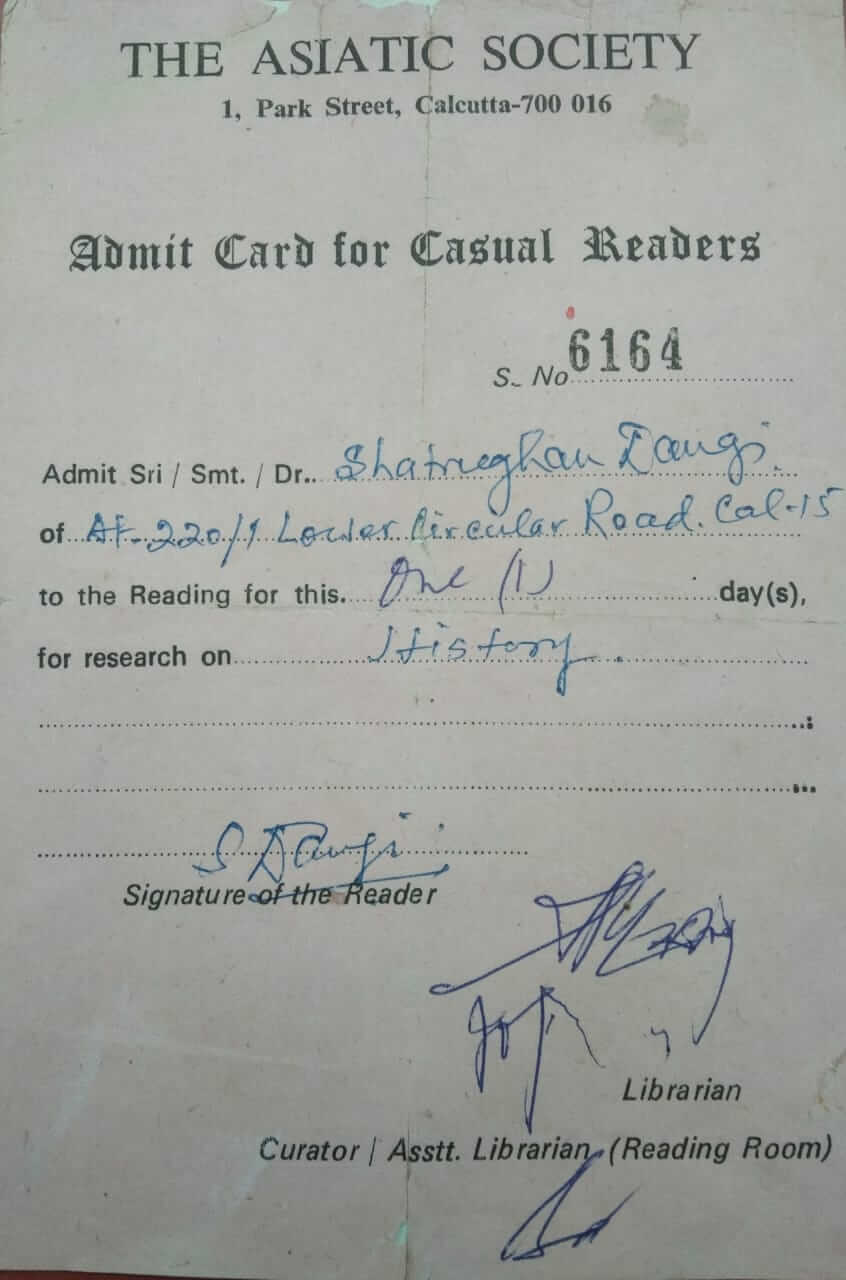 THE ASIATIC SOCIETY
1, Park Street, Calcutta-700 016
Admit Card for Casual Readers
S. No 6164
Admit Sri / Smt. / Dr.. Shatrughan Dangi.
of AF-220/1 Lower Circular Road. Cal-15
to the Reading for this. One (1) day(s),
for research on History.
S Dangi
Signature of the Reader
Librarian
Curator / Asstt. Librarian (Reading Room)